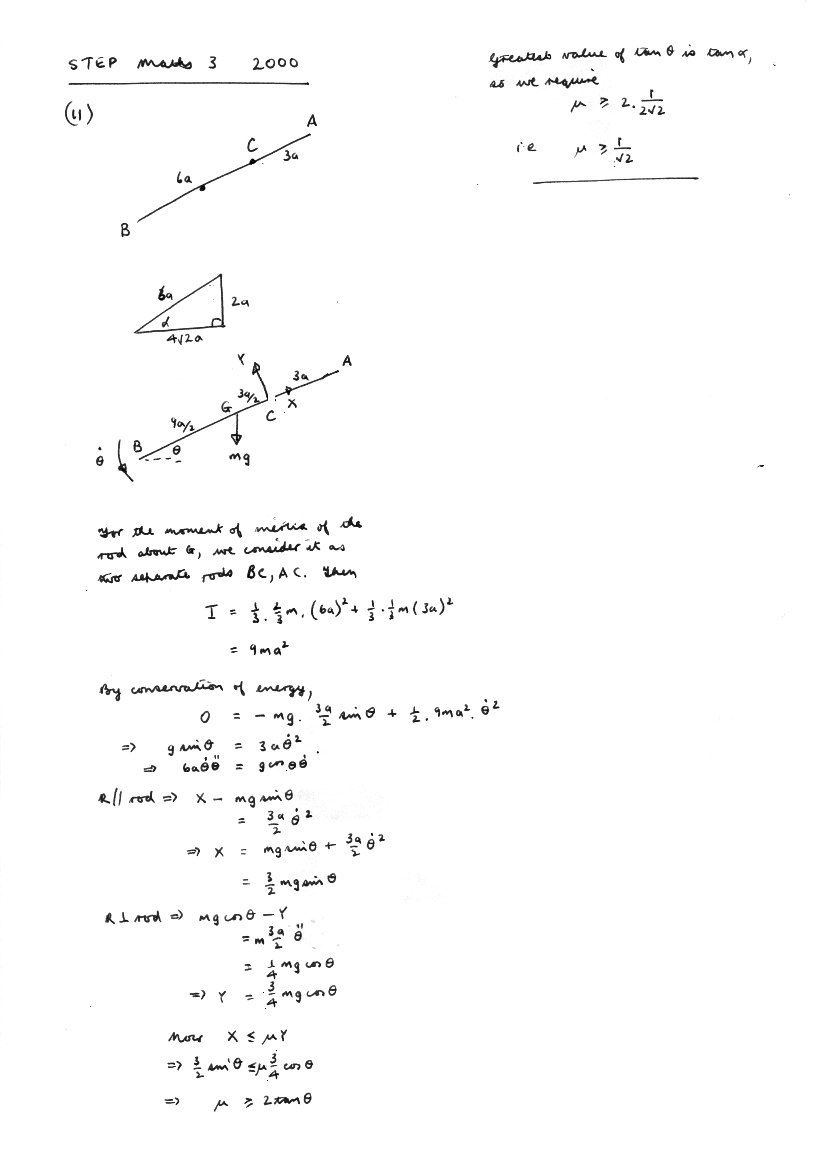 STEP Maths 3 2000
(11)
A
C
3a
6a
B
6a
2a
α
4√2a
Y
A
3a
3a/2
X
G
C
9a/2
B
θ
θ̇
mg
For the moment of inertia of the
rod about G, we consider it as
two separate rods BC, AC. Then
I = 1/3 . 2/3 m. (6a)² + 1/3 . 1/3 m (3a)²
= 9ma²
By conservation of energy,
0 = - mg. 3a/2 sin θ + 1/2 . 9ma². θ̇²
⇒ g sin θ = 3aθ̇².
⇒ 6aθ̇θ̈ = g cos θ θ̇
R// rod ⇒ X - mg sin θ
= 3a/2 θ̇²
⇒ X = mg sin θ + 3a/2 θ̇²
= 3/2 mg sin θ
R⊥ rod ⇒ mg cos θ - Y
= m 3a/2 θ̈
= 1/4 mg cos θ
⇒ Y = 3/4 mg cos θ
Now X ≤ μY
⇒ 3/2 sin θ ≤ μ 3/4 cos θ
⇒ μ ≥ 2 tan θ
Greatest value of tan θ is tan α,
so we require
μ ≥ 2. 1/2√2
i.e μ ≥ 1/√2